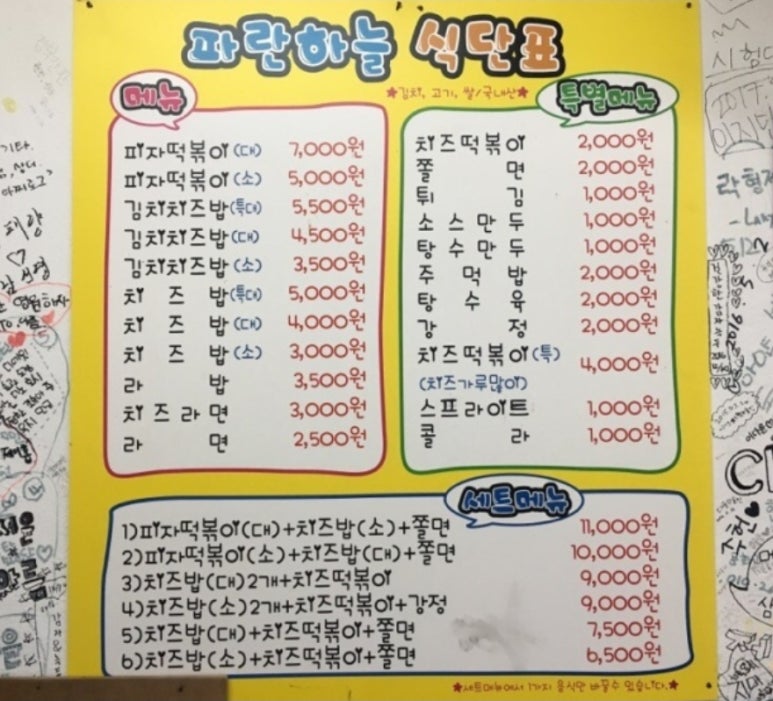 파란하늘 식단표
★김치, 고기, 쌀/국내산★
메뉴
피자떡볶이(대) 7,000원
피자떡볶이(소) 5,000원
김치치즈밥(특대) 5,500원
김치치즈밥(대) 4,500원
김치치즈밥(소) 3,500원
치즈밥(특대) 5,000원
치즈밥(대) 4,000원
치즈밥(소) 3,000원
라밥 3,500원
치즈라면 3,000원
라면 2,500원
특별메뉴
치즈떡볶이 2,000원
쫄면 2,000원
튀김 1,000원
소스만두 1,000원
탕수만두 1,000원
주먹밥 2,000원
탕수육 2,000원
강정 2,000원
치즈떡볶이(특) 4,000원
(치즈가루많이)
스프라이트 1,000원
콜라 1,000원
세트메뉴
1)피자떡볶이(대)+치즈밥(소)+쫄면 11,000원
2)피자떡볶이(소)+치즈밥(대)+쫄면 10,000원
3)치즈밥(대)2개+치즈떡볶이 9,000원
4)치즈밥(소)2개+치즈떡볶이+강정 9,000원
5)치즈밥(대)+치즈떡볶이+쫄면 7,500원
6)치즈밥(소)+치즈떡볶이+쫄면 6,500원
★세트메뉴에서 1가지 음식만 바꿀수 있습니다.★